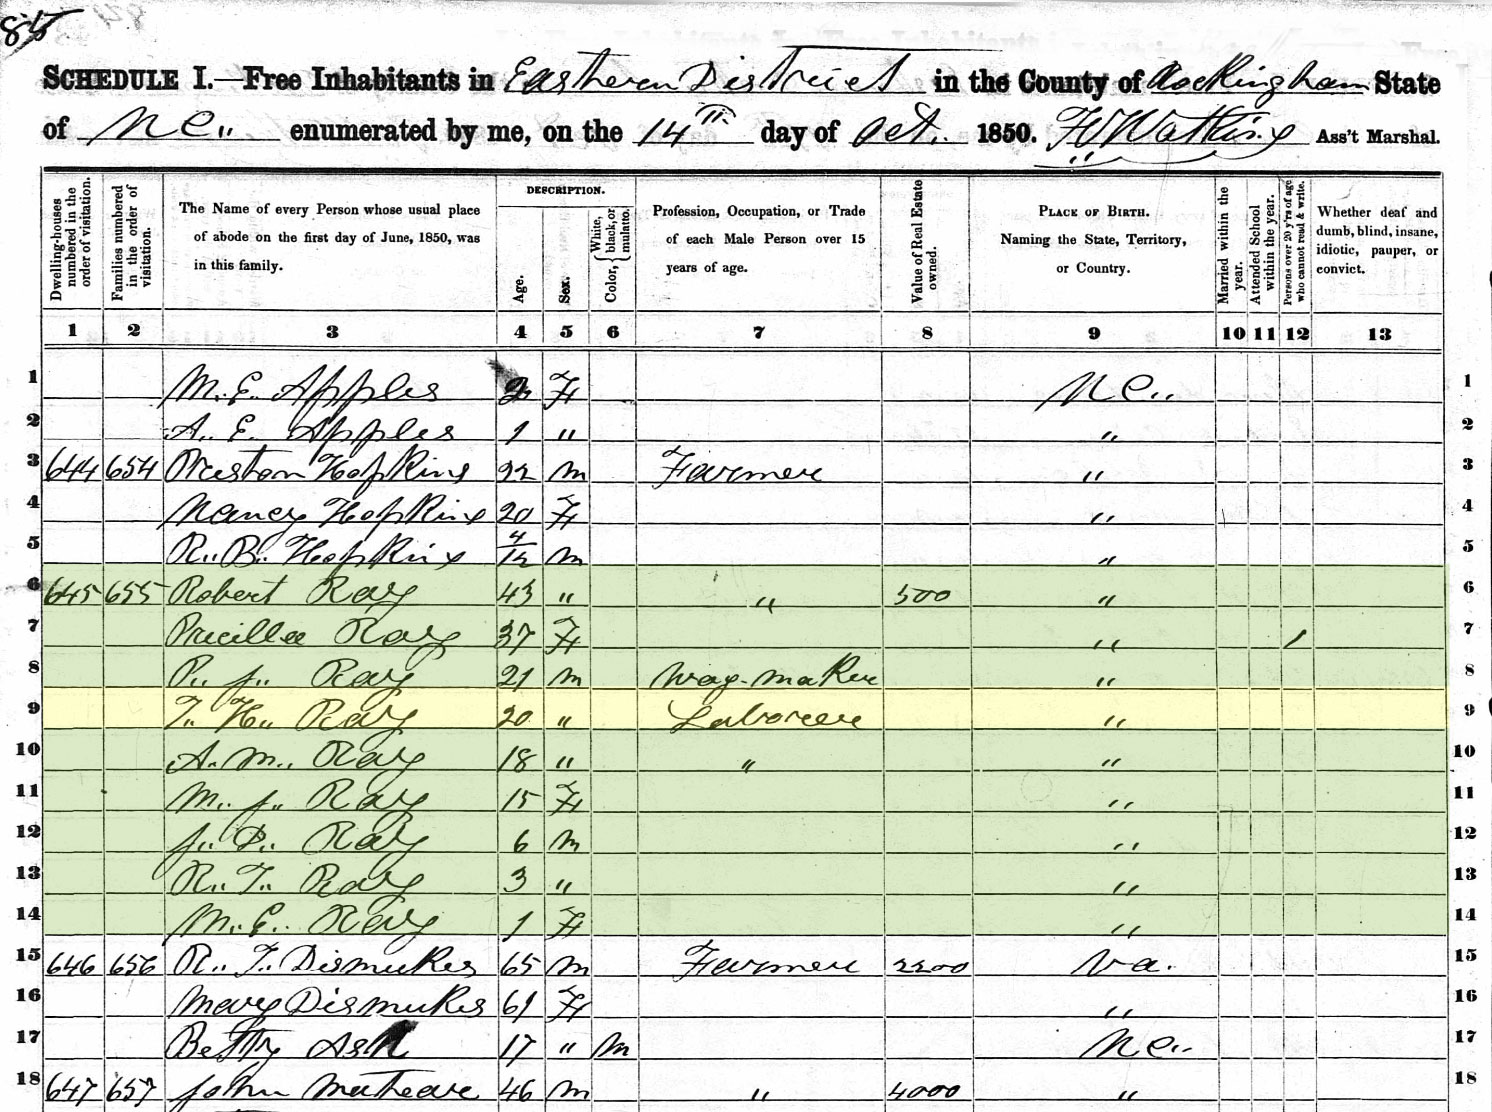 85
SCHEDULE I.—Free Inhabitants in Eastern District in the County of Rockingham State
of N C,, enumerated by me, on the 14th day of Oct. 1850. Ass't Marshal.
Dwelling-houses numbered in the order of visitation.
Families numbered in the order of visitation.
The Name of every Person whose usual place of abode on the first day of June, 1850, was in this family.
DESCRIPTION.
Age.
Sex.
Color, { White, black, or mulatto.
Profession, Occupation, or Trade of each Male Person over 15 years of age.
Value of Real Estate owned.
PLACE OF BIRTH. Naming the State, Territory, or Country.
Married within the year.
Attended School within the year.
Persons over 20 y'rs of age who cannot read & write.
Whether deaf and dumb, blind, insane, idiotic, pauper, or convict.
1 2 3 4 5 6 7 8 9 10 11 12 13
1 M. E. Apples F N C,, 1
2 A. E. Apples 1 " " 2
3 644 654 Preston Hopkins 22 M Farmer " 3
4 Nancy Hopkins 20 F " 4
5 R,, B,, Hopkins 4/12 M " 5
6 645 655 Robert Ray 43 " " 500 " 6
7 Pricilla Ray 37 F " / 7
8 P. J,, Ray 21 M Wag-maker " 8
9 T,, H,, Ray 20 " Laborer " 9
10 A. M,, Ray 18 " " " 10
11 M. J,, Ray 15 F " 11
12 J,, D,, Ray 6 M " 12
13 R,, T,, Ray 3 " " 13
14 M,, E,, Ray 1 F " 14
15 646 656 R,, T,, Dismukes 65 M Farmer 2200 Va. 15
16 Mary Dismukes 61 F " 16
17 Betty Ash 17 " M N C,, 17
18 647 657 John 46 M " 4000 " 18